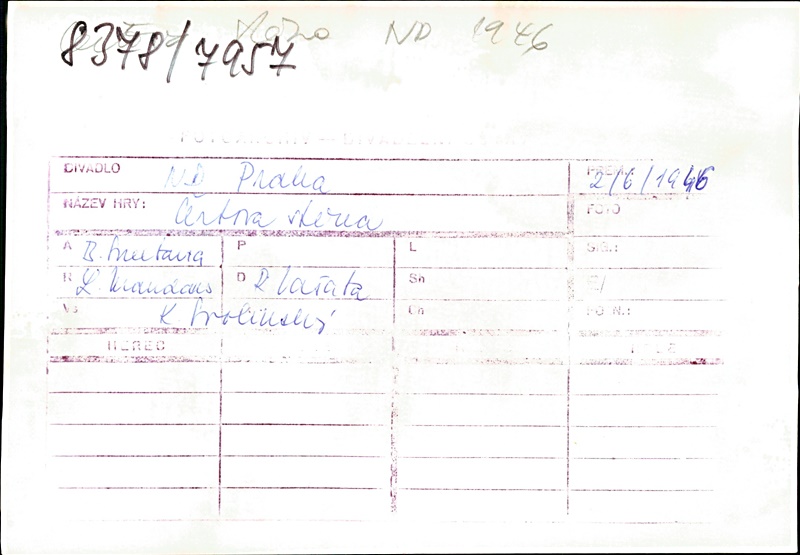 ND 1946
8378/7957
FOTOARCHIV – DIVADELNÍ
DIVADLO ND Praha PREM. 2/6/1946
NÁZEV HRY: Čertova stěna FOTO
A B. Smetana P L SIG.:
R L. Mandaus D Z Lařata Sh
Vs K Svolinský Ch FO N.:
HEREC